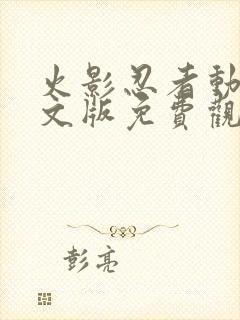 火影忍者動
文版免費觀
彭亮